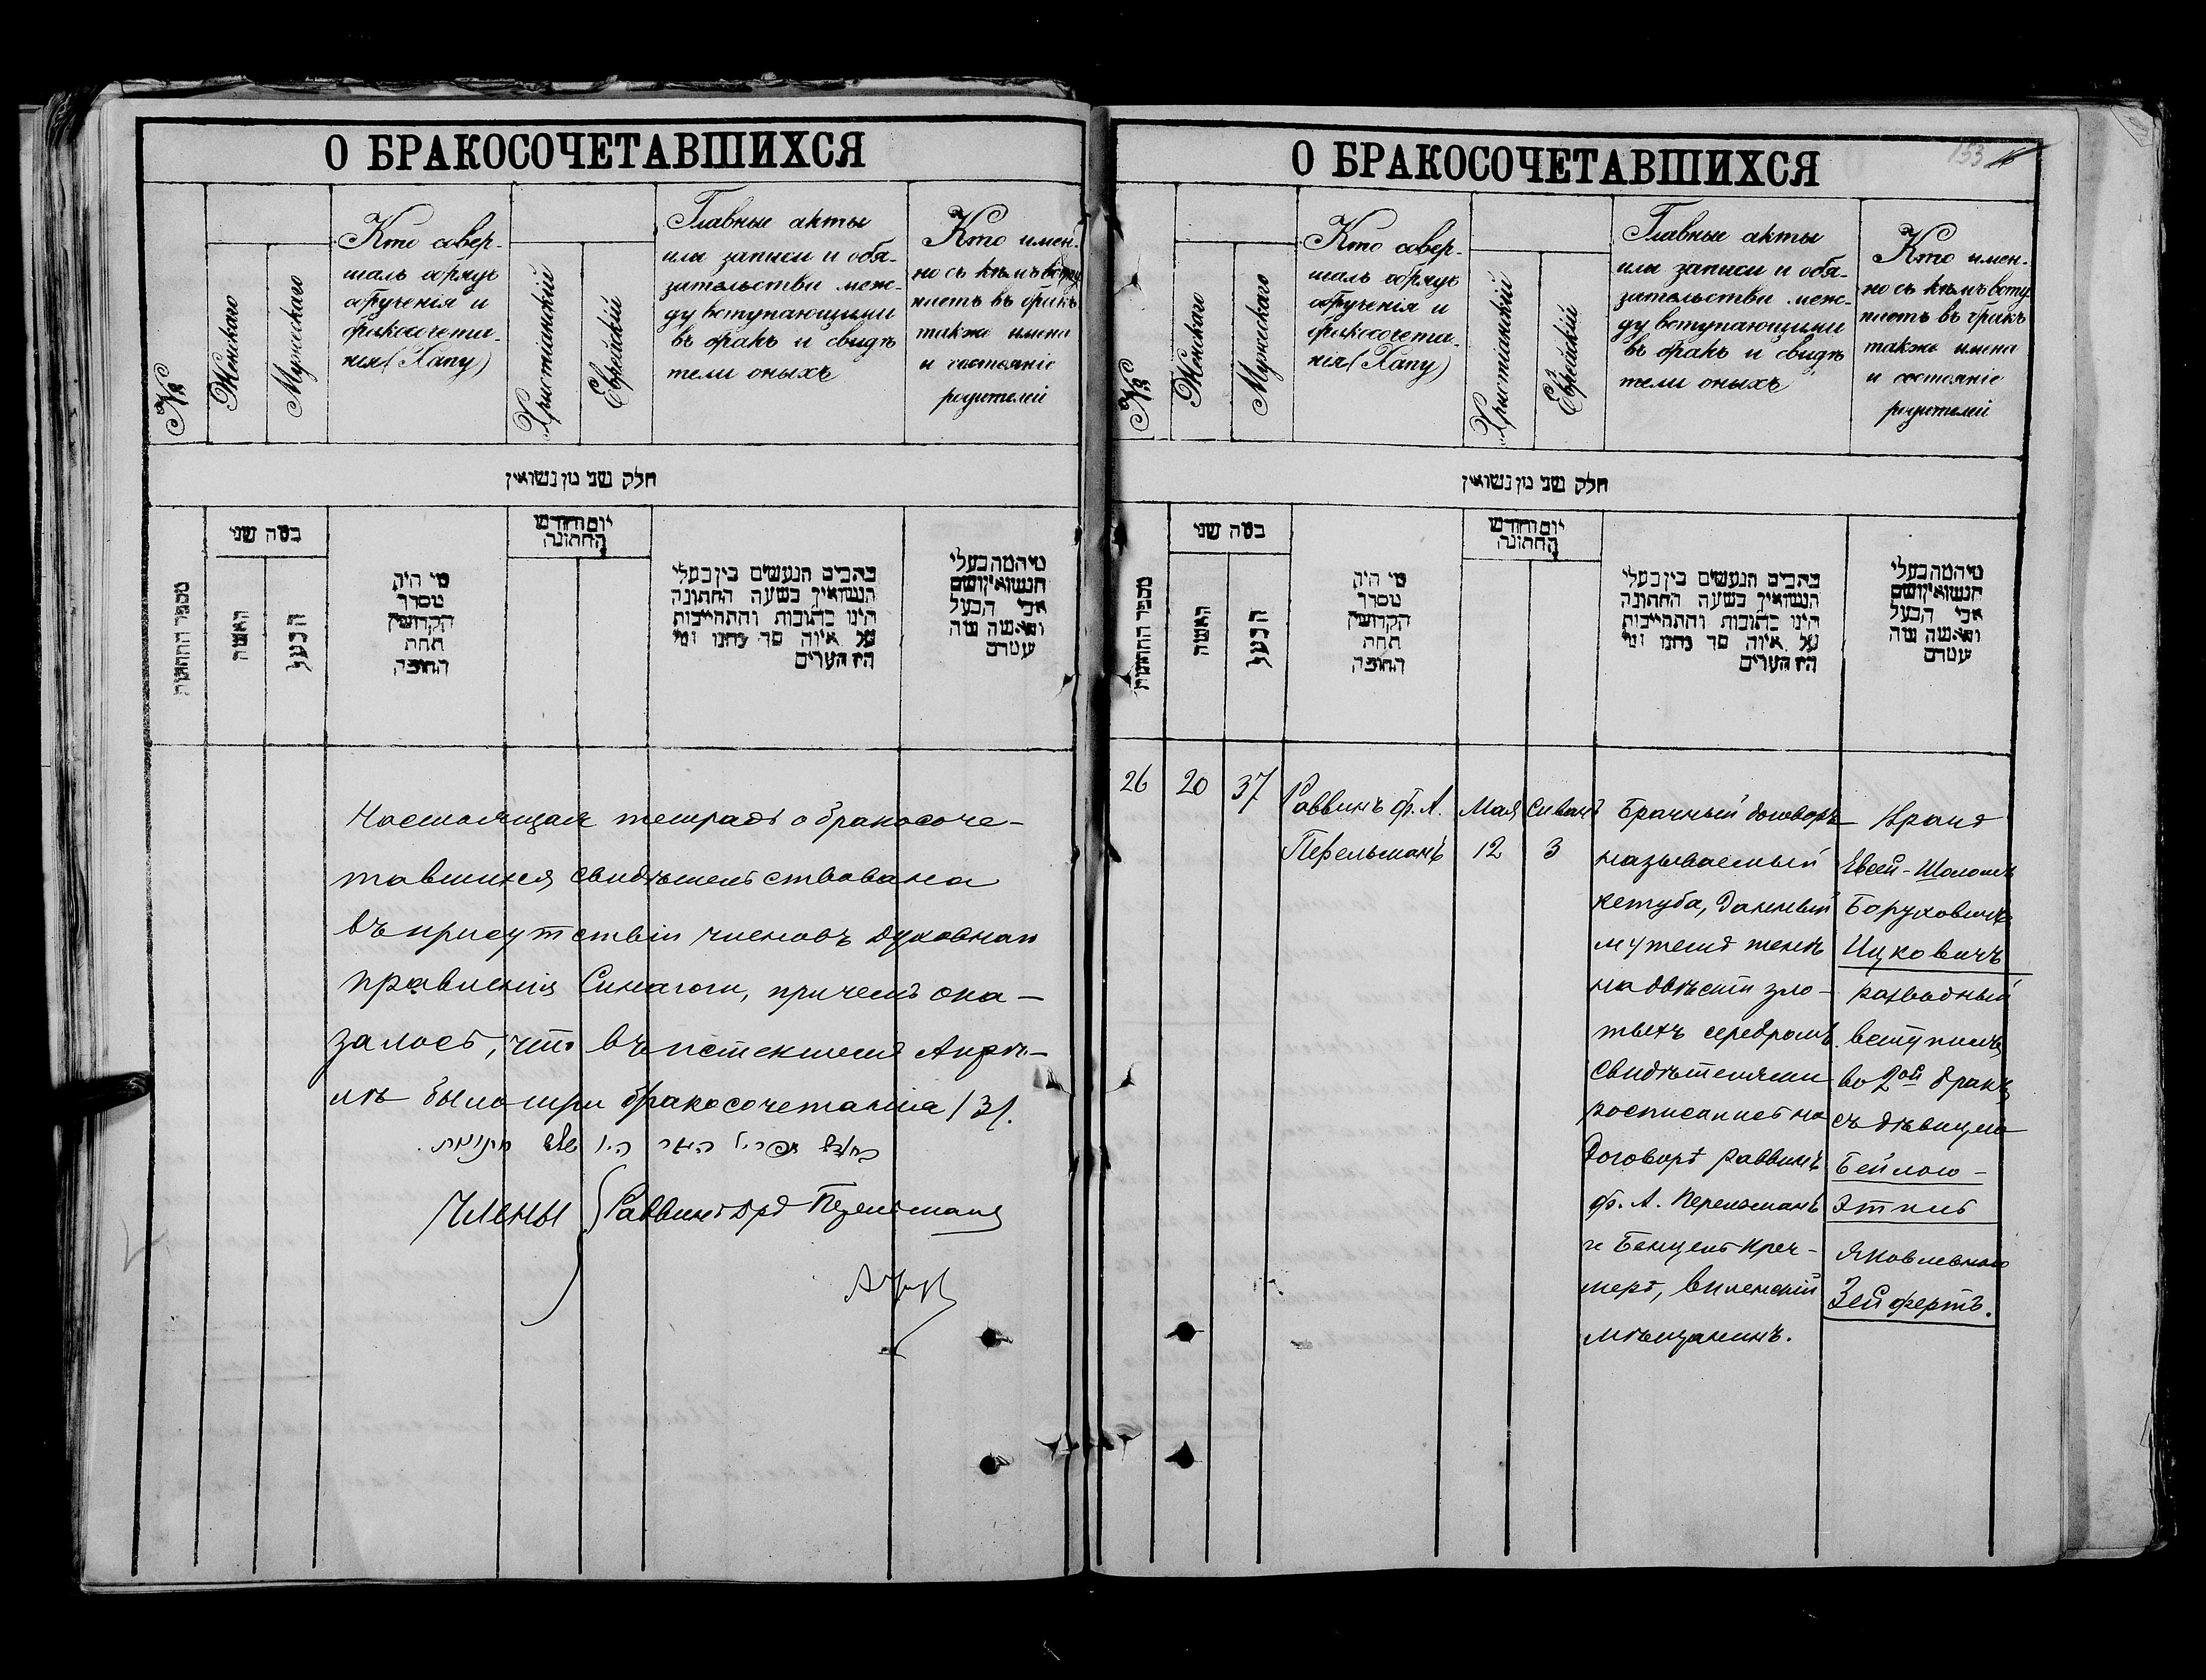 О БРАКОСОЧЕТАВШИХСЯ
№
Женскаго
Мужескаго
Кто совер-
шалъ обрядъ
обрученія и
бракосочета-
нія (Хапу)
Христіанскій
Еврейскій
Главные акты
или записи и обя-
зательства меж-
ду вступающими
въ бракъ и свидѣ
тели оныхъ
Кто имен-
но съ кѣмъ всту
паетъ въ бракъ
также имена
и состояніе
родителей
חלק שני מן נשואין
מספר החתונות
כמה שני
האשה
הבעל
מי היה
מסדר
הקדושין
תחת
החופה
יום וחודש
החתונה
כתבים הנעשים בין בעלי
הנשואין בשעה החתונה
היינו כתובות והתחייבות
על איזה סך נתנו ומי
היו העדים
מי המה בעלי
הנשואין ושם
אבי הבעל
והאשה ומה
מעמדם
Настоящая тетрадь о бракосоче-
тавшихся свидѣтельствована
въ присутствіи членовъ духовнаго
правленія Синагоги, причемъ ока-
залось, что въ истекшемъ Апрѣ-
лѣ было три бракосочетанія /3/.
בחודש אפריל היו שלש חתונות.
Члены
Раввинъ Перельманъ
О БРАКОСОЧЕТАВШИХСЯ
153
№
Женскаго
Мужескаго
Кто совер-
шалъ обрядъ
обрученія и
бракосочета-
нія (Хапу)
Христіанскій
Еврейскій
Главные акты
или записи и обя-
зательства меж-
ду вступающими
въ бракъ и свидѣ
тели оныхъ
Кто имен-
но съ кѣмъ всту
паетъ въ бракъ
также имена
и состояніе
родителей
חלק שני מן נשואין
מספר החתונות
כמה שני
האשה
הבעל
מי היה
מסדר
הקדושין
תחת
החופה
יום וחודש
החתונה
כתבים הנעשים בין בעלי
הנשואין בשעה החתונה
היינו כתובות והתחייבות
על איזה סך נתנו ומי
היו העדים
מי המה בעלי
הנשואין ושם
אבי הבעל
והאשה ומה
מעמדם
26
20
37
Раввинъ Ф. А.
Перельманъ
Мая
12
Сиванъ
3
Брачный договоръ
называемый
кетуба, данный
мужемъ женѣ
на двѣсти зло-
тыхъ серебромъ.
Свидѣтелями
росписались на
договорѣ раввинъ
Ф. А. Перельманъ
и Бенцель Креч-
меръ, виленскій
мѣщанинъ.
Евсей-Шоломъ
Боруховичъ
Ицковичъ
разводный
вступилъ
во 2ой бракъ
съ дѣвицею
Бейлою-
Этлею
Яковлевною
Зейфертъ.